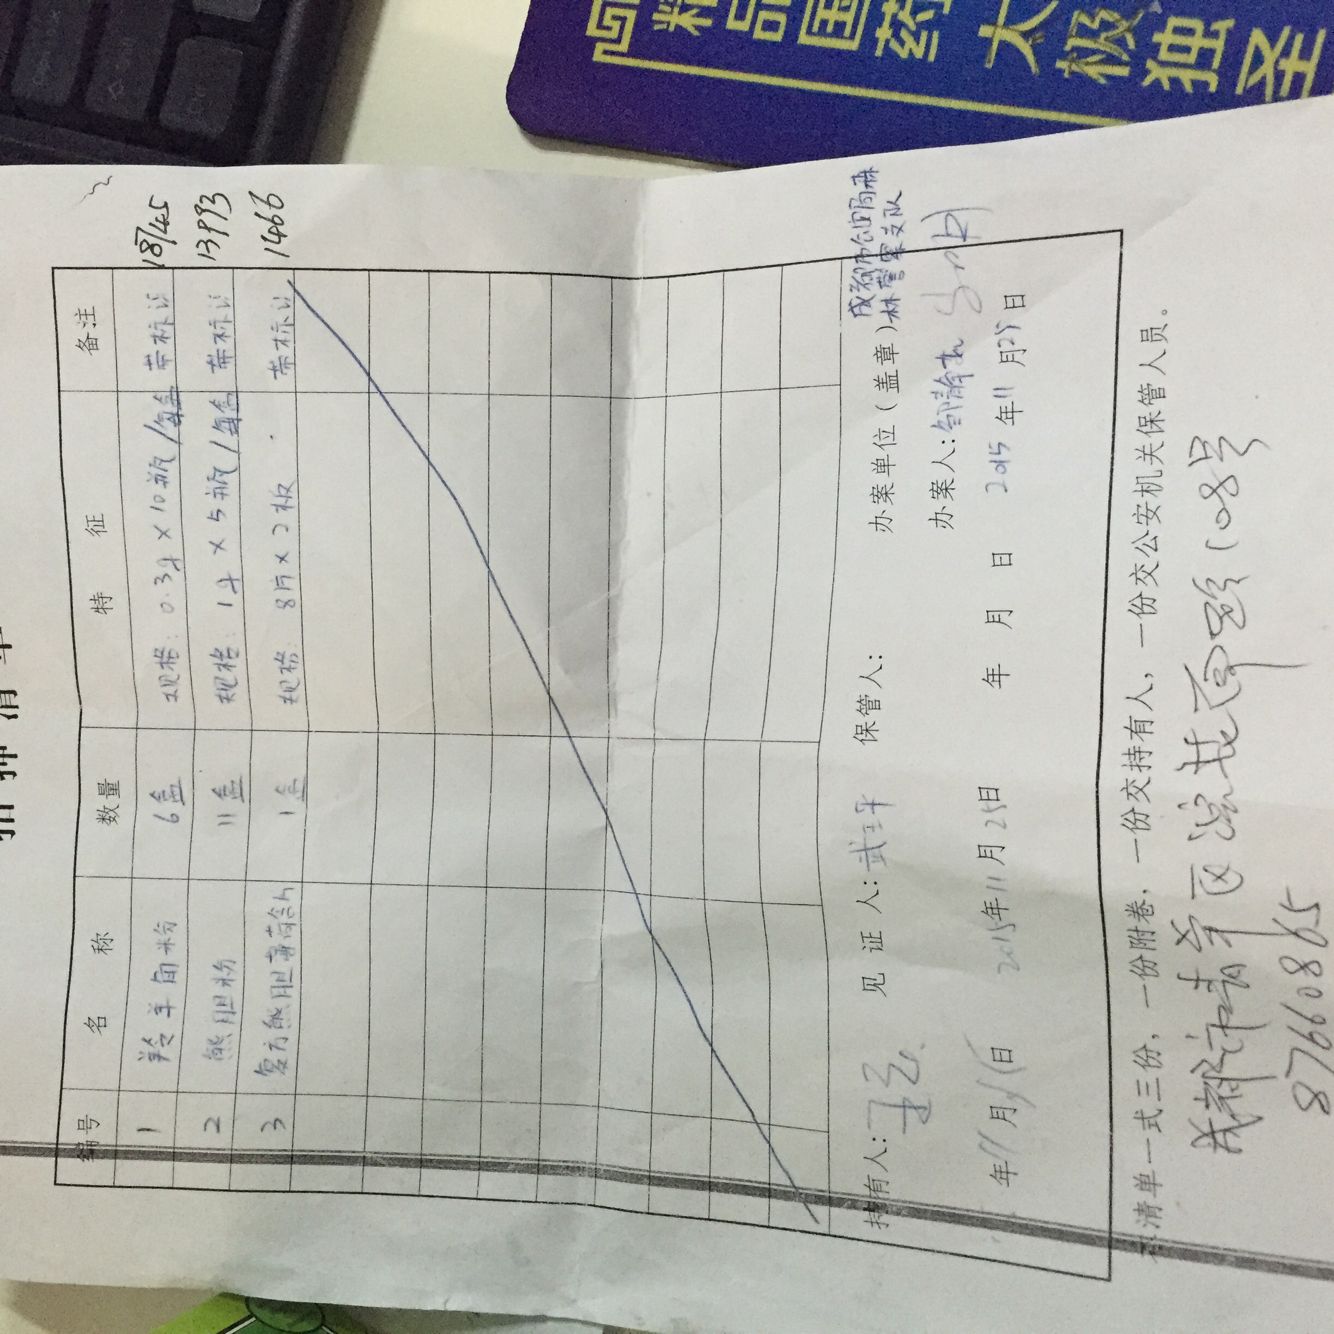 精品国药 太极独圣
扣押清单
编号 名称 数量 特征 备注
1 羚羊角粉 6盒 规格：0.3g×10瓶/每盒 带标识 18745
2 熊胆粉 11盒 规格：1g×5瓶/每盒 带标识 13993
3 复方熊胆薄荷含片 1盒 规格：8片×2板 带标识 1466
持有人： 见证人： 保管人： 办案单位（盖章）成都市公安局森林警察支队
办案人：邹静
年11月 日 2015年11月25日 年 月 日 2015年11月25日
本清单一式三份，一份附卷，一份交持有人，一份交公安机关保管人员。
成都市青羊区浣花南路108号
87660865